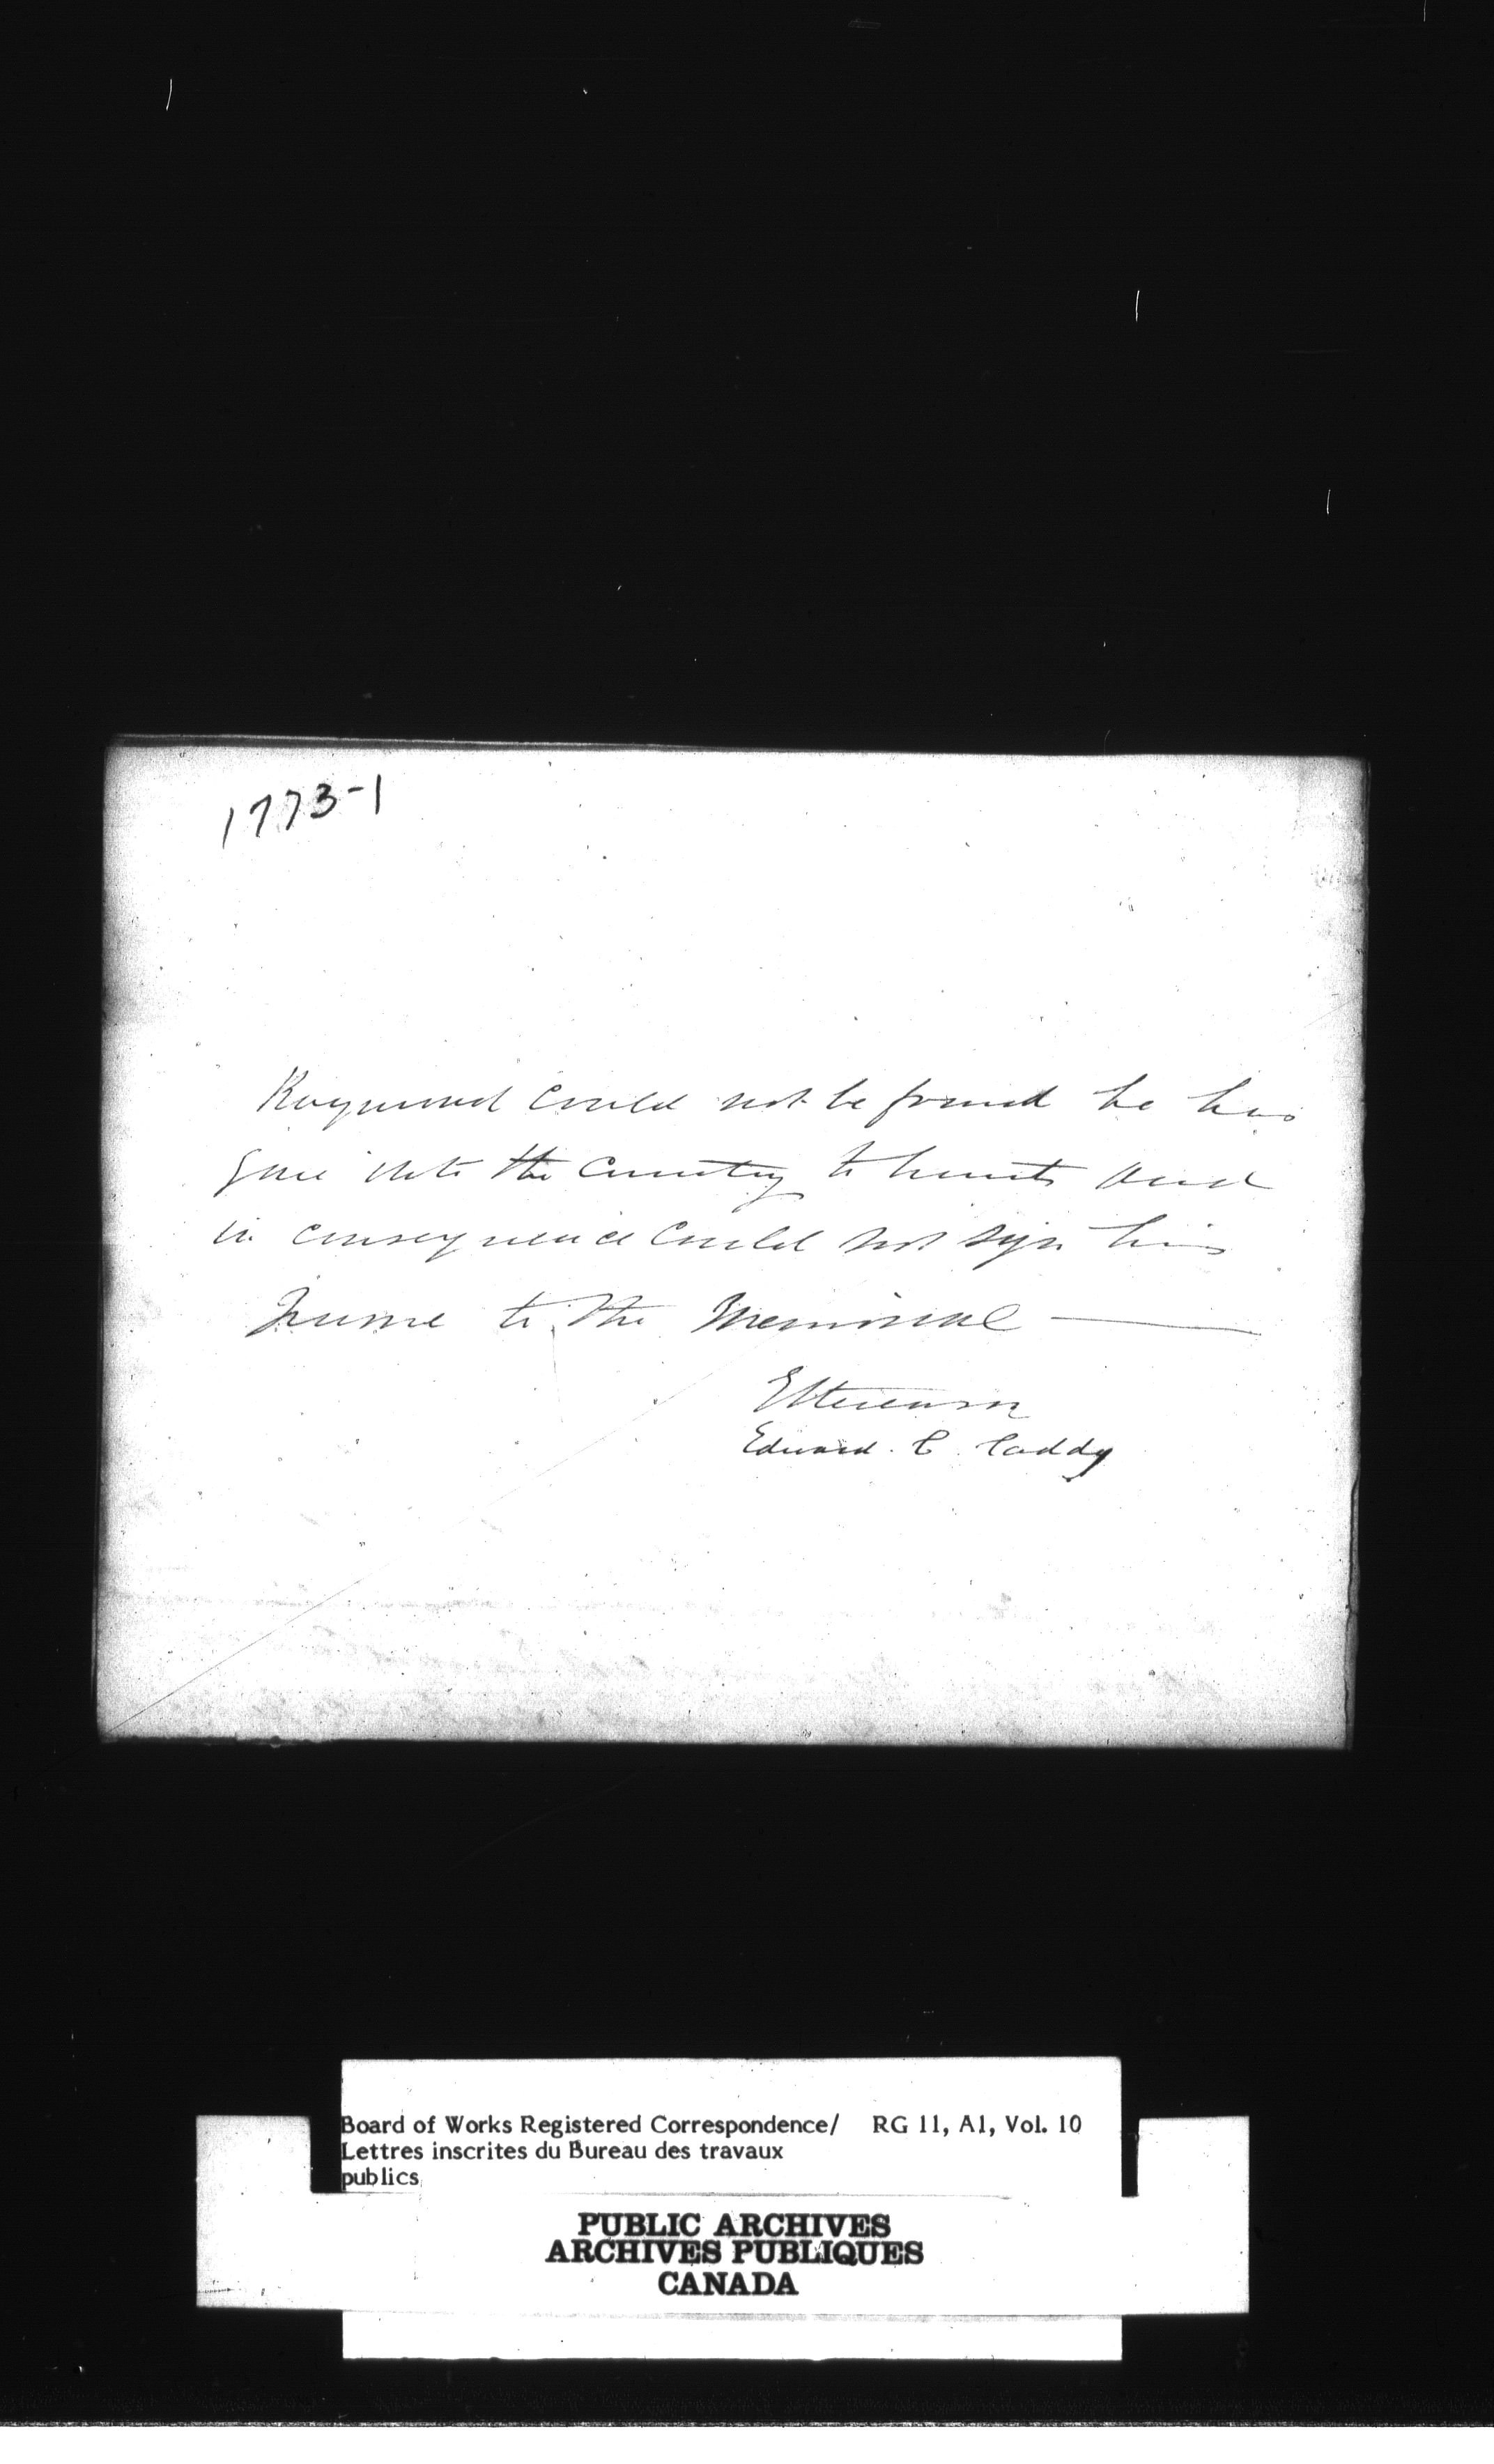 1773-1
Raymond could not be found he has
gone into the Country to hunt and
in consequence could not sign his
name to the Memorial
Edward. C. Caddy
Board of Works Registered Correspondence/ RG 11, A1, Vol. 10
Lettres inscrites du Bureau des travaux
publics
PUBLIC ARCHIVES
ARCHIVES PUBLIQUES
CANADA